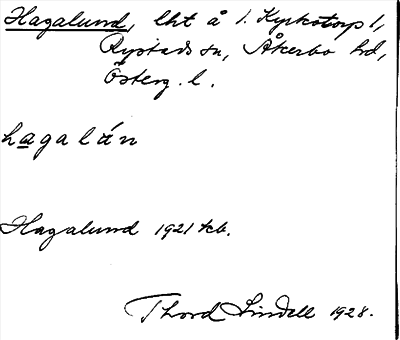 Hagalund, lht å 1. Kyrkotorp 1,
Rystads sn, Åkerbo hd,
Österg. l.
hagalán
Hagalund 1921 kb.
Thord Lindell 1928.